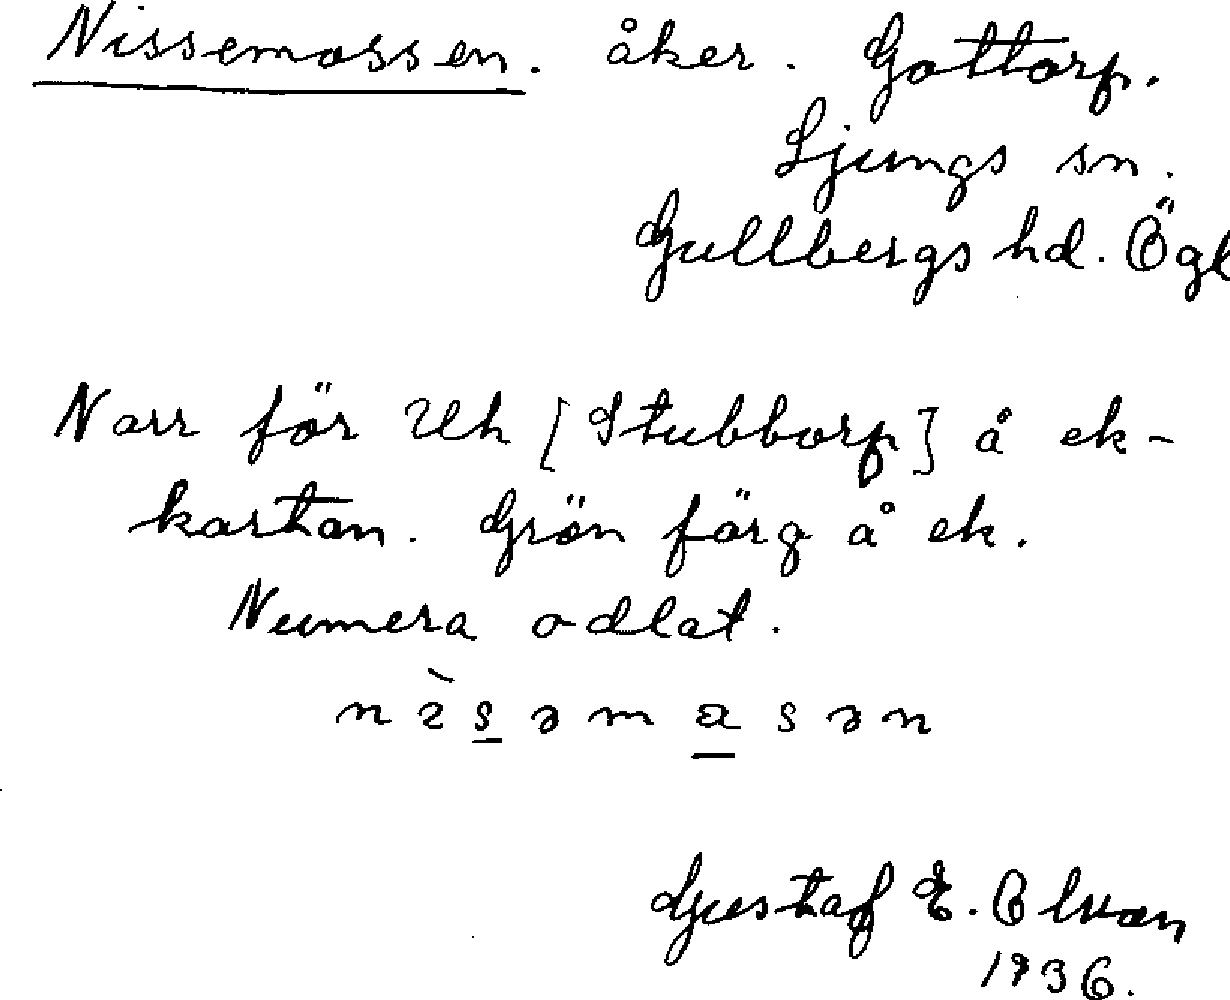 Nissemossen. åker. Gottorp.
Ljungs sn.
Gullbergs hd. Ögl
Norr för Uh [Stubborp] å ek-
kartan. Grön färg å ek.
Numera odlat.
Gustaf E. Olvon
1936.